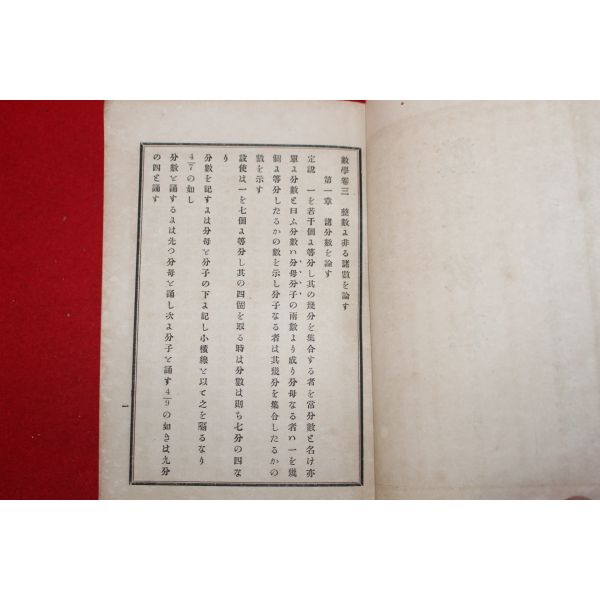 數學卷三 整數ニ非る諸數を論す
第一章 諸分數を論す
定說 一を若干個ニ等分し其の幾分を集合する者を常分數と名け亦
單ニ分數と曰ふ分數ハ分母分子の兩數より成り分母なる者ハ一を幾
個ニ等分したるかの數を示し分子なる者は其幾分を集合したるかの
數を示す
設使は一を七個ニ等分し其の四個を取る時は分數は則ち七分の四な
り
分數を記すニは分母と分子の下ニ記し小橫線と以て之を隔るなり
4/7の如し
分數と誦するニは先つ分母と誦し次ニ分子と誦す4/9の如きは九分
の四と誦す
一